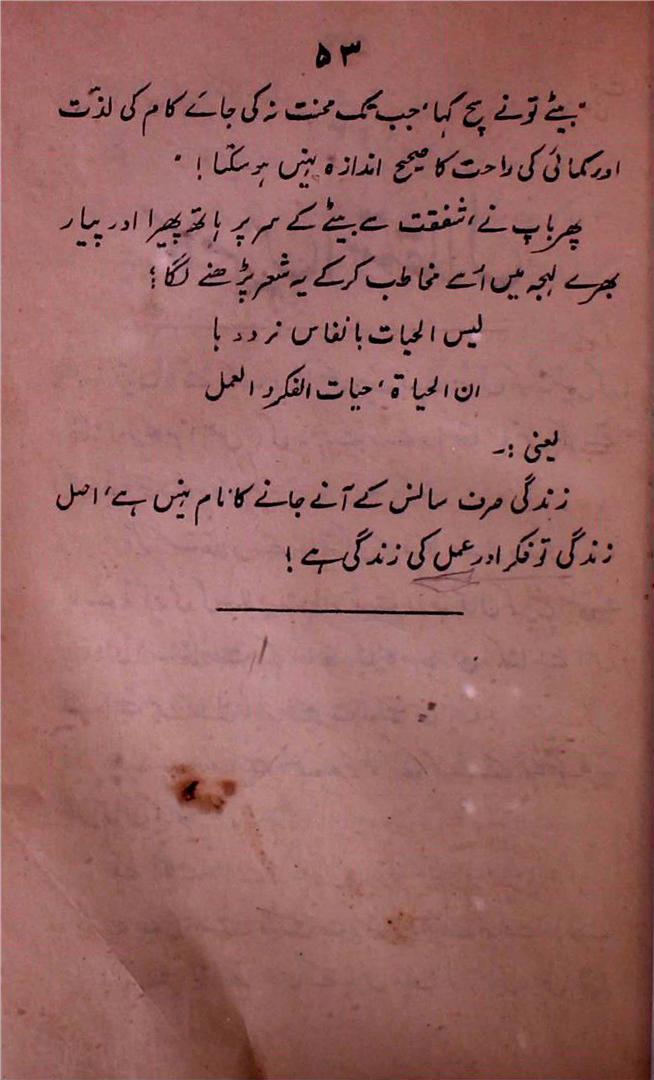 ۵۳
"بیٹے تو نے سچ کہا، جب تک محنت نہ کی جائے کام کی لذّت
اور کمائی کی راحت کا صحیح اندازہ نہیں ہو سکتا!"
پھر باپ نے، شفقت سے بیٹے کے سر پر ہاتھ پھیرا اور پیار
بھرے لہجہ میں اُسے مخاطب کرکے یہ شعر پڑھنے لگا؛
لیس الحیات بانفاس نرددہا
ان الحیاۃ، حیات الفکر و العمل
یعنی :۔
زندگی صرف سانس کے آنے جانے کا نام نہیں ہے، اصل
زندگی تو فکر اور عمل کی زندگی ہے!